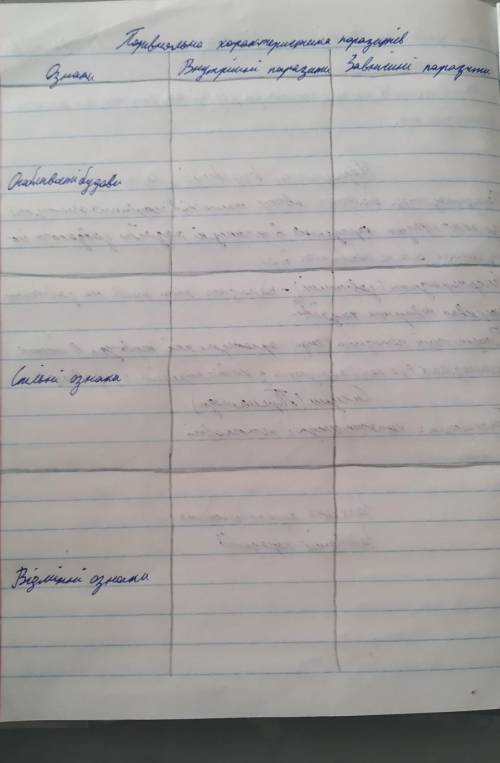 Порівняльна характеристика паразитів
Ознаки Внутрішні паразити Зовнішні паразити
Особливості будови
Спільні ознаки
Відмінні ознаки